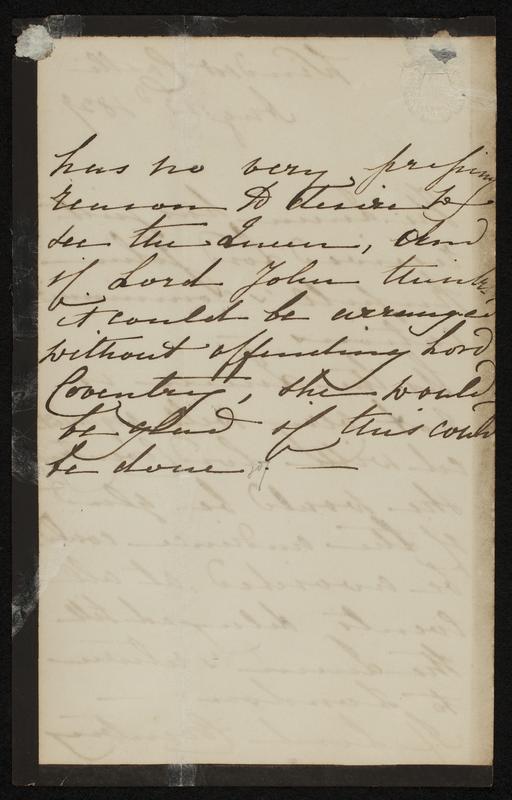 has no very pressing
reason to desire to
see the Queen, and
if Lord John thinks
it could be arranged
without offending Lord
Coventry, she would
be glad if this could
be done. —